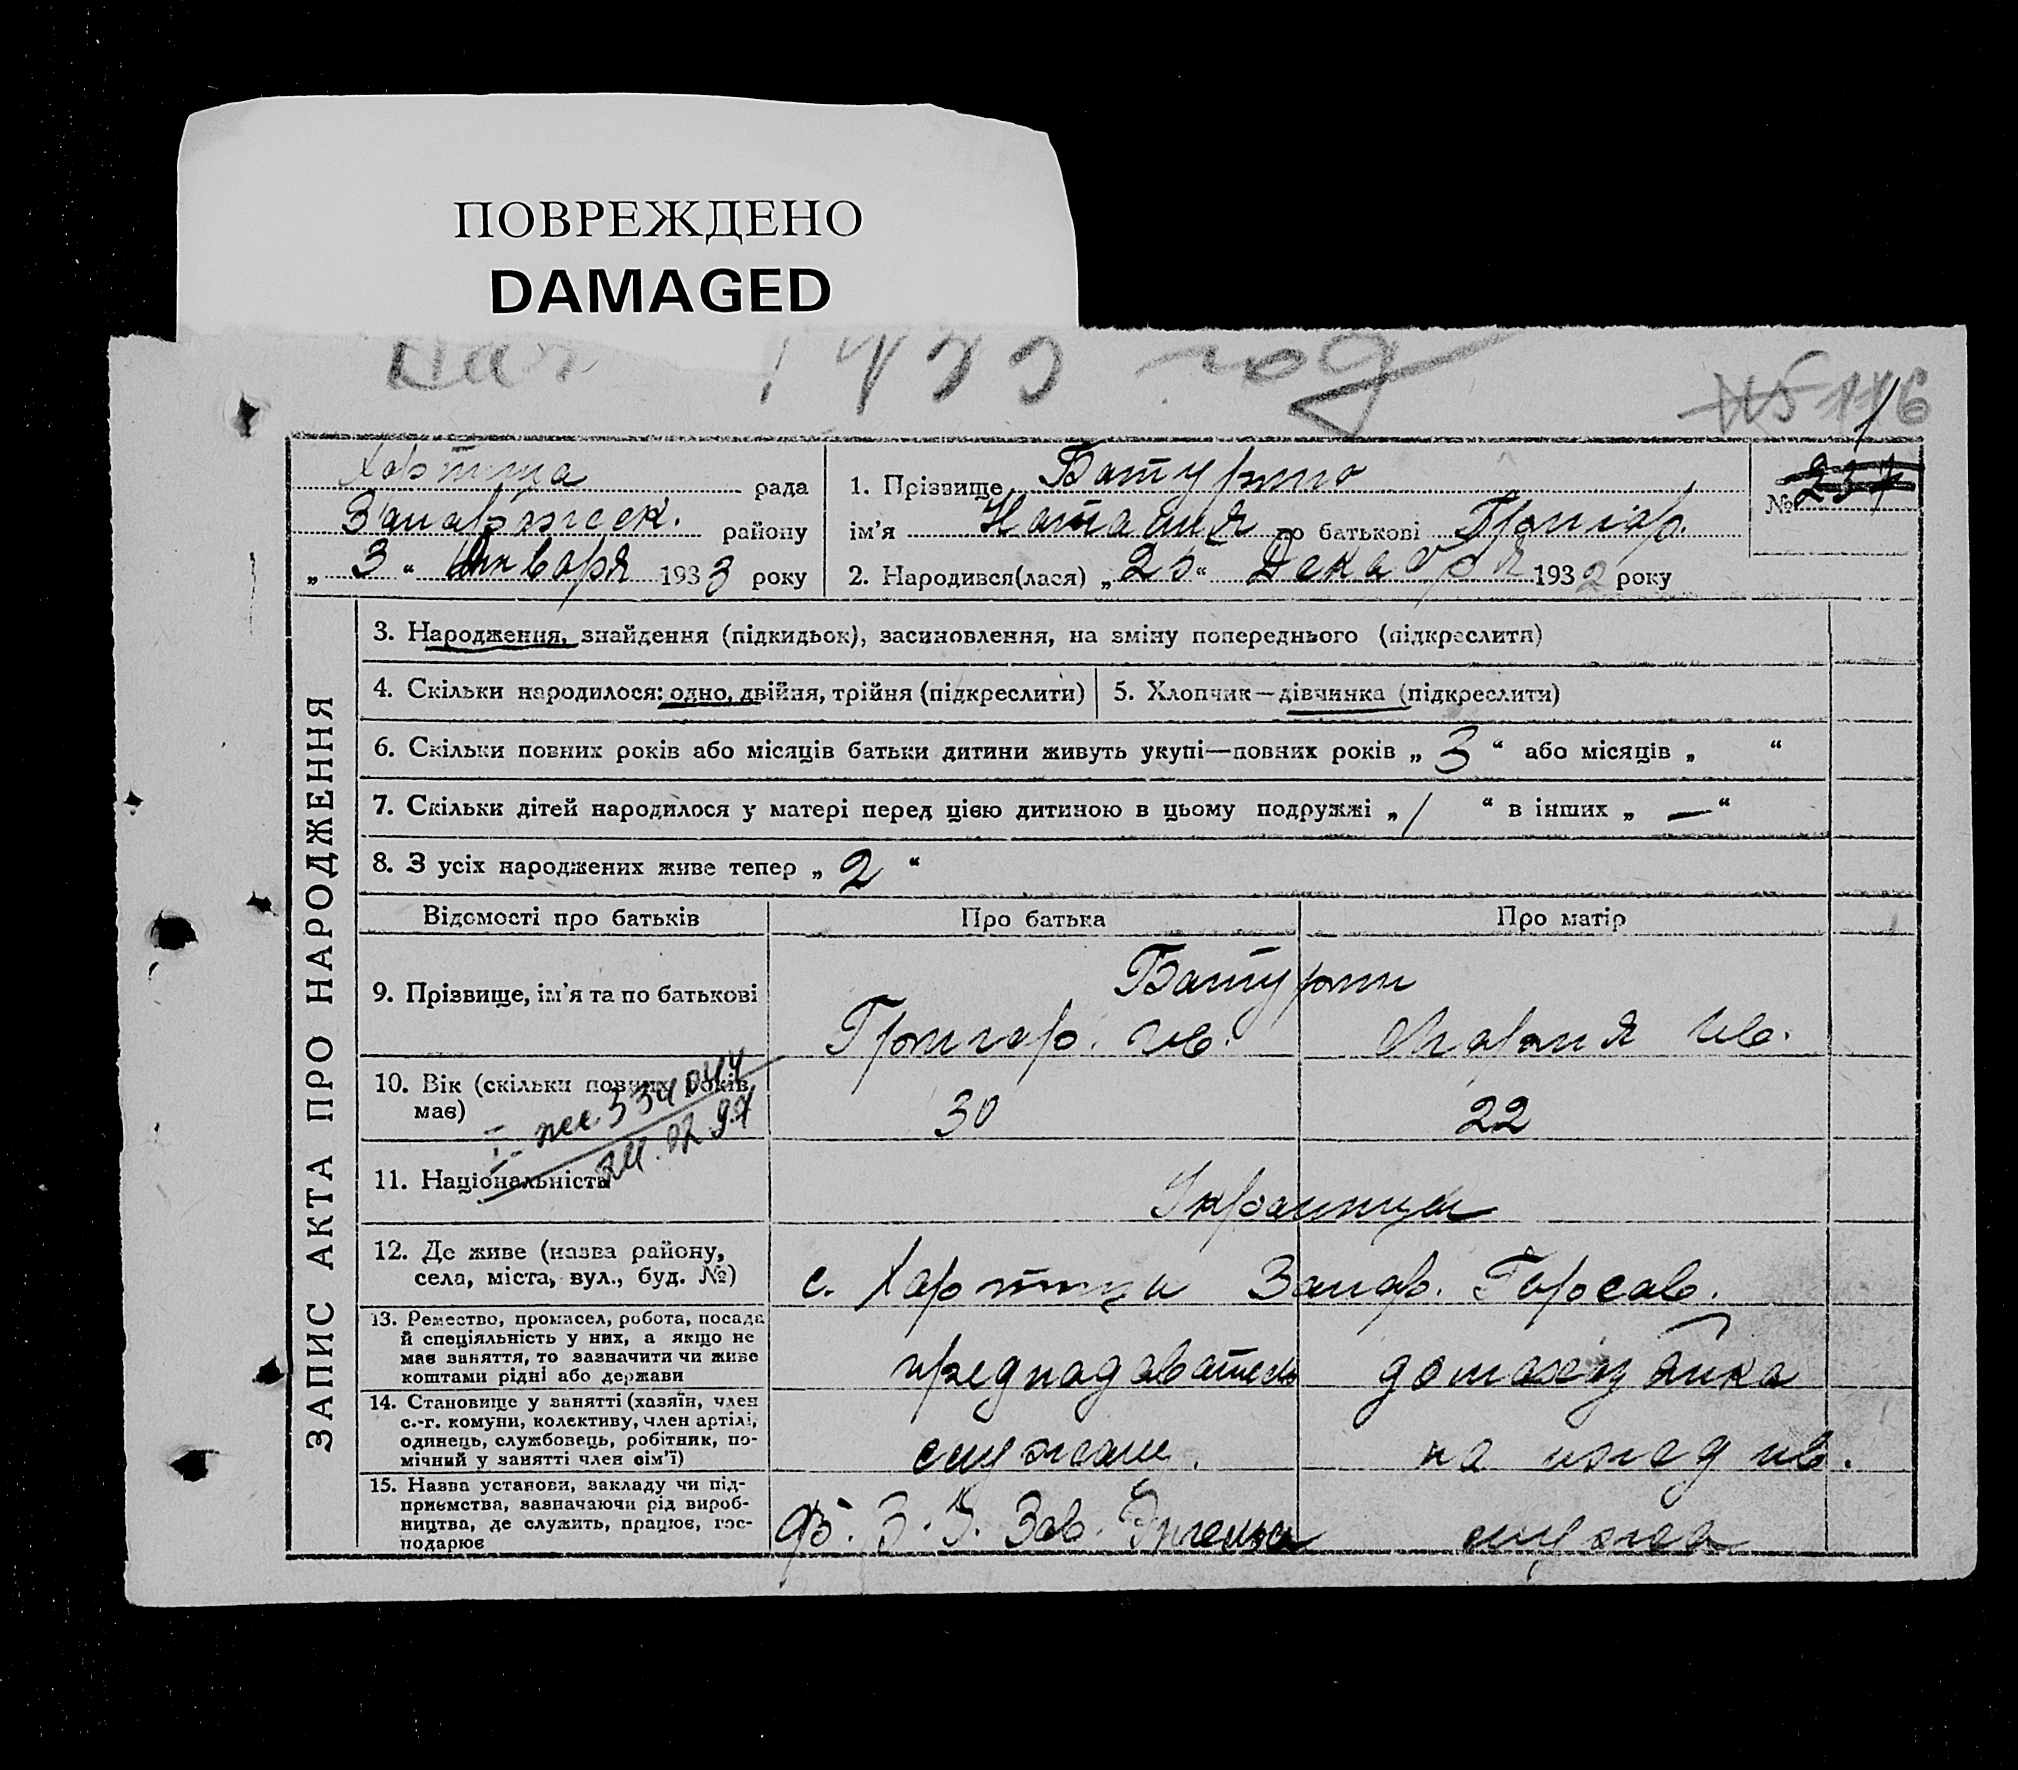 ПОВРЕЖДЕНО
DAMAGED
1933 год
116
Хортица рада
Запорожск. району
„ 3 “ Января 1933 року
1. Прізвище
ім’я Наталия по батькові Григор.
2. Народився(лася) „ “ Декабря 1932 року
№ 237
ЗАПИС АКТА ПРО НАРОДЖЕННЯ
3. Народження, знайдення (підкидьок), засиновлення, на зміну попереднього (підкреслити)
4. Скільки народилося: одно, двійня, трійня (підкреслити)
5. Хлопчик—дівчинка (підкреслити)
6. Скільки повних років або місяців батьки дитини живуть укупі—повних років „ 3 “ або місяців „ “
7. Скільки дітей народилося у матері перед цією дитиною в цьому подружжі „ 1 “ в інших „ — “
8. З усіх народжених живе тепер „ 2 “
Відомості про батьків
Про батька
Про матір
9. Прізвище, ім’я та по батькові
Григор. Ив.
Мария Ив.
10. Вік (скільки повних років
має)
30
22
11. Національність
Украинцы
12. Де живе (назва району,
села, міста, вул., буд. №)
с. Хортица Запор. Горсов.
13. Ремество, промисел, робота, посада
й спеціяльність у них, а якщо не
має заняття, то зазначити чи живе
коштами рідні або держави
домохозяйка
14. Становище у занятті (хазяїн, член
с.-г. комуни, колективу, член артілі,
одинець, службовець, робітник, по-
мічний у занятті член сім’ї)
служащ.
на иждив.
15. Назва установи, закладу чи під-
приємства, зазначаючи рід вироб-
ництва, де служить, працює, гос-
подарює
Ф. З. У. Зав. Энгельса
мужа